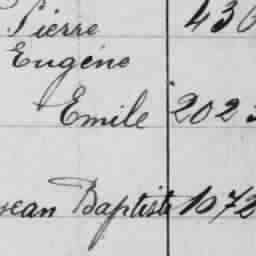 Pierre 430
Eugéne
Emile 2023
Jean Baptiste 1072